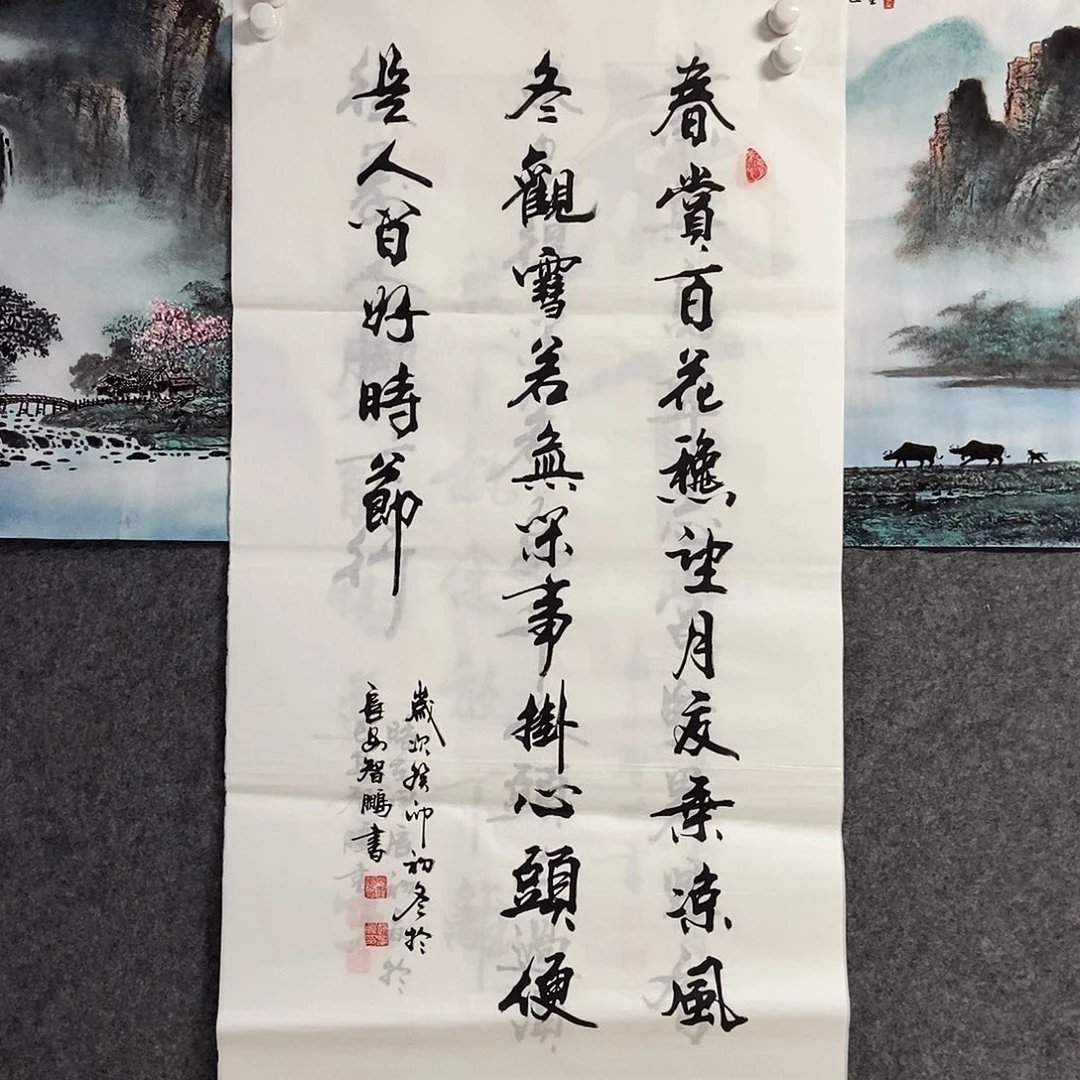 春賞百花穐望月夏乘涼風
冬觀雪若無閑事掛心頭便
是人間好時節
歲次癸卯初冬於
長安智鵬書